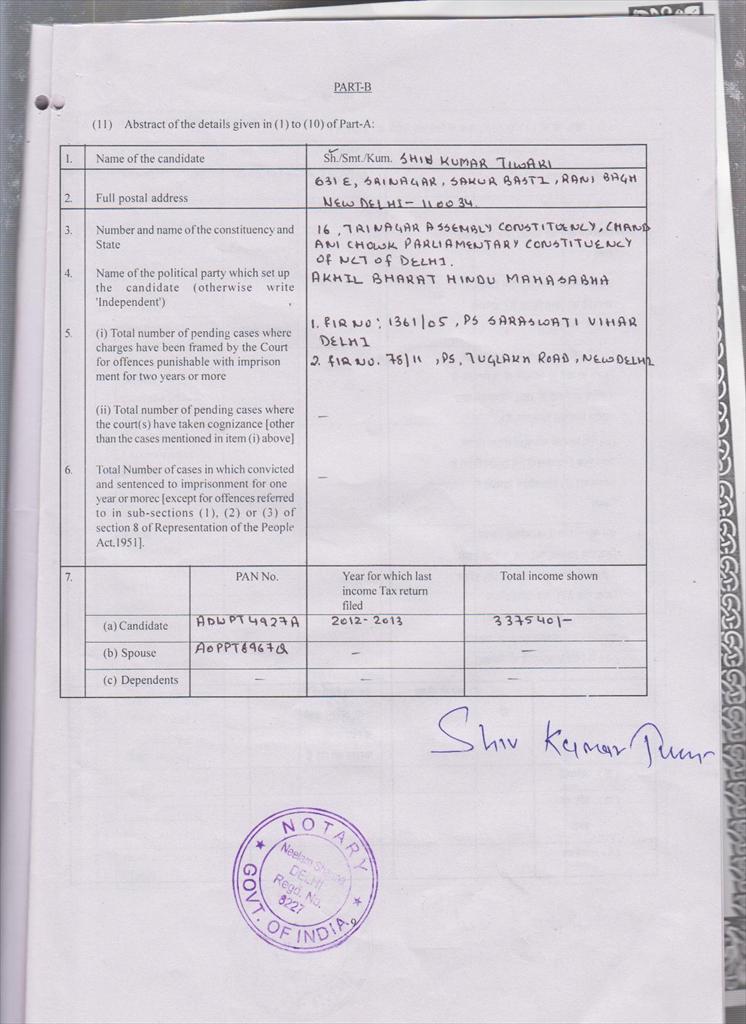 PART-B
(11) Abstract of the details given in (1) to (10) of Part-A:
1. Name of the candidate Sh./Smt./Kum. SHIV KUMAR TIWARI
2. Full postal address 631 E, SRINAGAR, SAKUR BASTI, RANI BAGH
NEW DELHI- 110034.
3. Number and name of the constituency and State 16, TRINAGAR ASSEMBLY CONSTITUENCY, CHAND
ANI CHOWK PARLIAMENTARY CONSTITUENCY
OF NCT OF DELHI.
4. Name of the political party which set up AKHIL BHARAT HINDU MAHASABHA
the candidate (otherwise write
'Independent')
5. (i) Total number of pending cases where 1. FIR NO: 1361/05, PS SARASWATI VIHAR
charges have been framed by the Court DELHI
for offences punishable with imprison 2. FIR NO. 78/11, PS, TUGLAKH ROAD, NEW DELHI
ment for two years or more
(ii) Total number of pending cases where –
the court(s) have taken cognizance [other
than the cases mentioned in item (i) above]
6. Total Number of cases in which convicted –
and sentenced to imprisonment for one
year or morec [except for offences referred
to in sub-sections (1), (2) or (3) of
section 8 of Representation of the People
Act,1951].
7. PAN No. Year for which last Total income shown
income Tax return
filed
(a) Candidate ADWPT4927A 2012-2013 337540/-
(b) Spouse AOPPT6967Q – –
(c) Dependents – – –
Shiv Kumar Tiwari
NOTARY
Neelam
DELHI
Regd. No.
GOVT. OF INDIA